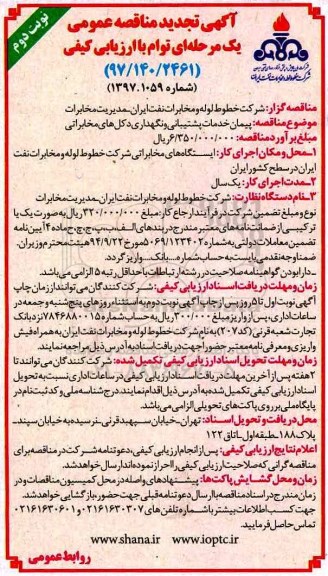 نوبت دوم
آگهی تجدید مناقصه عمومی
یک مرحله‌ای توام با ارزیابی کیفی
(۹۷/۱۴۰/۲۴۶۱)
(شماره ۱۳۹۷.۱۰۵۹)
شرکت خطوط لوله و مخابرات نفت ایران
مناقصه گزار: شرکت خطوط لوله و مخابرات نفت ایران ـ مدیریت مخابرات
موضوع مناقصه: پیمان خدمات پشتیبانی و نگهداری دکل‌های مخابراتی
مبلغ برآورد مناقصه: ۶/۳۵۰/۰۰۰/۰۰۰ ریال
۱ـ محل و مکان اجرای کار: ایستگاه‌های مخابراتی شرکت خطوط لوله و مخابرات نفت
ایران در سطح کشور ایران
۲ـ مدت اجرای کار: یک سال
۳ـ نام دستگاه نظارت: شرکت خطوط لوله و مخابرات نفت ایران ـ مدیریت مخابرات
نوع و مبلغ تضمین شرکت در فرآیند ارجاع کار: مبلغ ۳۲۰/۰۰۰/۰۰۰ ریال به صورت یک یا
ترکیبی از ضمانت‌نامه‌های معتبر مندرج در بندهای الف، ب، پ، ج، چ، ح ماده ۴ آیین‌نامه
تضمین معاملات دولتی به شماره ۱۲۳۴۰۲/ت ۵۰۶۵۹ هـ مورخ ۹۴/۹/۲۲ هیئت محترم وزیران.
ضمنا وجه نقد می‌بایست به حساب شماره ... بانک ... واریز گردد.
ـ دارا بودن گواهینامه صلاحیت در رشته ارتباطات با حداقل رتبه ۵ الزامی می‌باشد.
زمان و مهلت دریافت اسناد ارزیابی کیفی: شرکت کنندگان می‌توانند از زمان چاپ
آگهی نوبت اول تا ۵ روز پس از چاپ آگهی نوبت دوم به استثناء روزهای پنج‌شنبه و جمعه در
ساعات اداری، پس از واریز مبلغ ۳۰۰/۰۰۰ ریال به حساب شماره ۷۸۴۶۸۸۰۰۱۵ نزد بانک
تجارت شعبه قرنی (کد ۲۰۷) به نام شرکت خطوط لوله و مخابرات نفت ایران به همراه فیش
واریزی و معرفی‌نامه معتبر حضوراً جهت دریافت اسناد به آدرس ذیل مراجعه نمایند.
زمان و مهلت تحویل اسناد ارزیابی کیفی تکمیل شده: شرکت کنندگان می‌توانند تا
۲ هفته پس از آخرین مهلت دریافت اسناد ارزیابی کیفی در ساعات اداری نسبت به تحویل
اسناد ارزیابی کیفی تکمیل شده به آدرس ذیل اقدام نمایند. درج شناسه ملی و کد ثبت نام در
پایگاه ملی بر روی پاکت‌های تحویلی الزامی می‌باشد.
محل دریافت و تحویل اسناد: تهران ـ خیابان سپهبد قرنی ـ نرسیده به خیابان سپند ـ
پلاک ۱۸۸ ـ طبقه اول ـ اتاق ۱۲۲
اعلام نتایج ارزیابی کیفی: پس از انجام ارزیابی کیفی، دعوتنامه شرکت در مناقصه برای
مناقصه گرانی که صلاحیت ارزیابی کیفی را احراز نموده‌اند ارسال خواهد شد.
زمان و محل گشایش پاکت‌ها: پیشنهادهای واصله در محل کمیسیون مناقصات و در
زمان مندرج در اسناد مناقصه با ارسال دعوتنامه قبلی جهت حضور، بازگشایی خواهد شد.
جهت کسب اطلاعات بیشتر با شماره تلفن‌های ۰۲۱۶۱۶۳۰۳۰۷ و ۰۲۱۶۱۶۳۰۶۰۱
تماس حاصل فرمایید.
www.shana.ir www.ioptc.ir
روابط عمومی